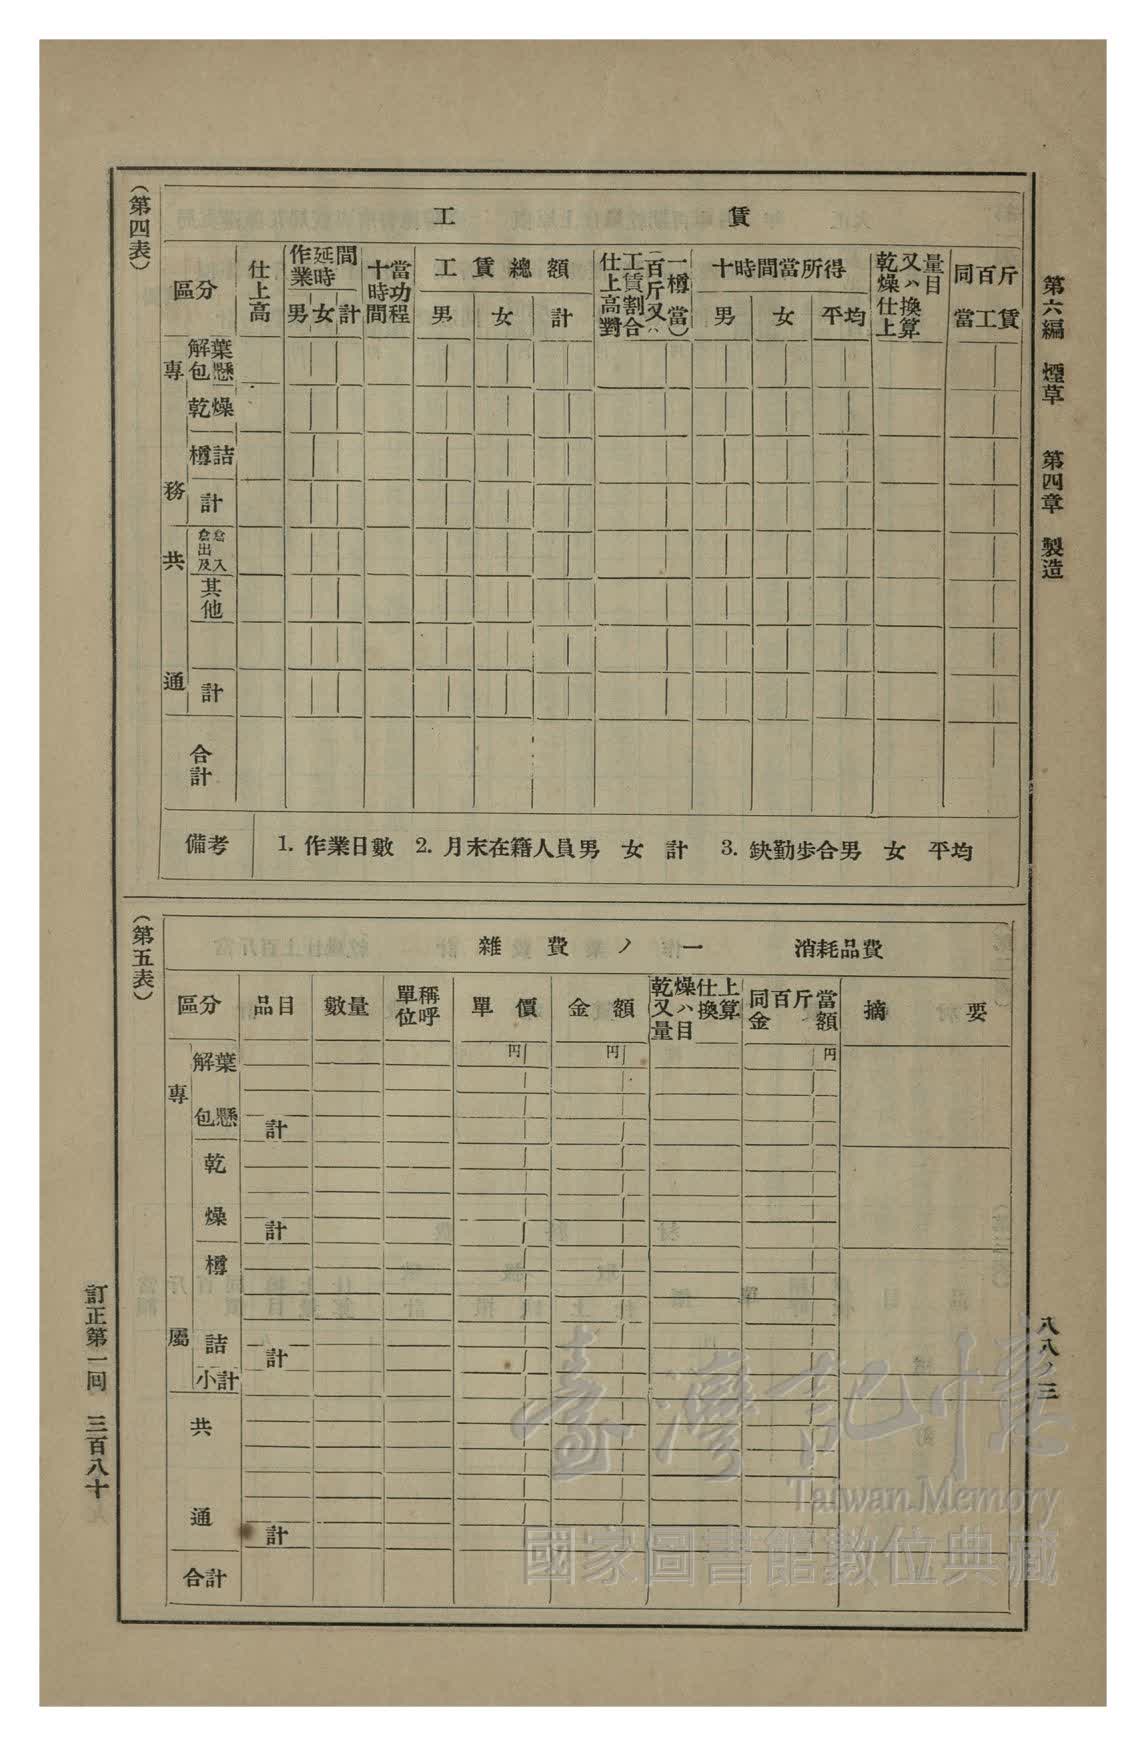 第六編　煙草　　第四章　製造
八八ノ三
（第四表）
工　賃
區分
仕上高
作業延時間
男 女 計
十時間當功程
工賃總額
男 女 計
仕上高對工賃割合（百斤又ハ一樽當）
十時間當所得
男 女 平均
乾燥仕上又ハ換算量目
同百斤當工賃
專務
解包葉懸
乾燥
樽詰
計
共通
倉出及倉入
其他
計
合計
備考
1. 作業日數　2. 月末在籍人員男　女　計　3. 缺勤步合男　女　平均
（第五表）
雜費ノ一　消耗品費
區分
品目
數量
單位稱呼
單價
金額
乾燥仕上又ハ換算量目
同百斤當金額
摘要
円 円 円
專屬
解包葉懸
計
乾燥
計
樽詰
計
小計
共通
計
合計
訂正第一回　三百八十
臺灣記憶
Taiwan Memory
國家圖書館數位典藏